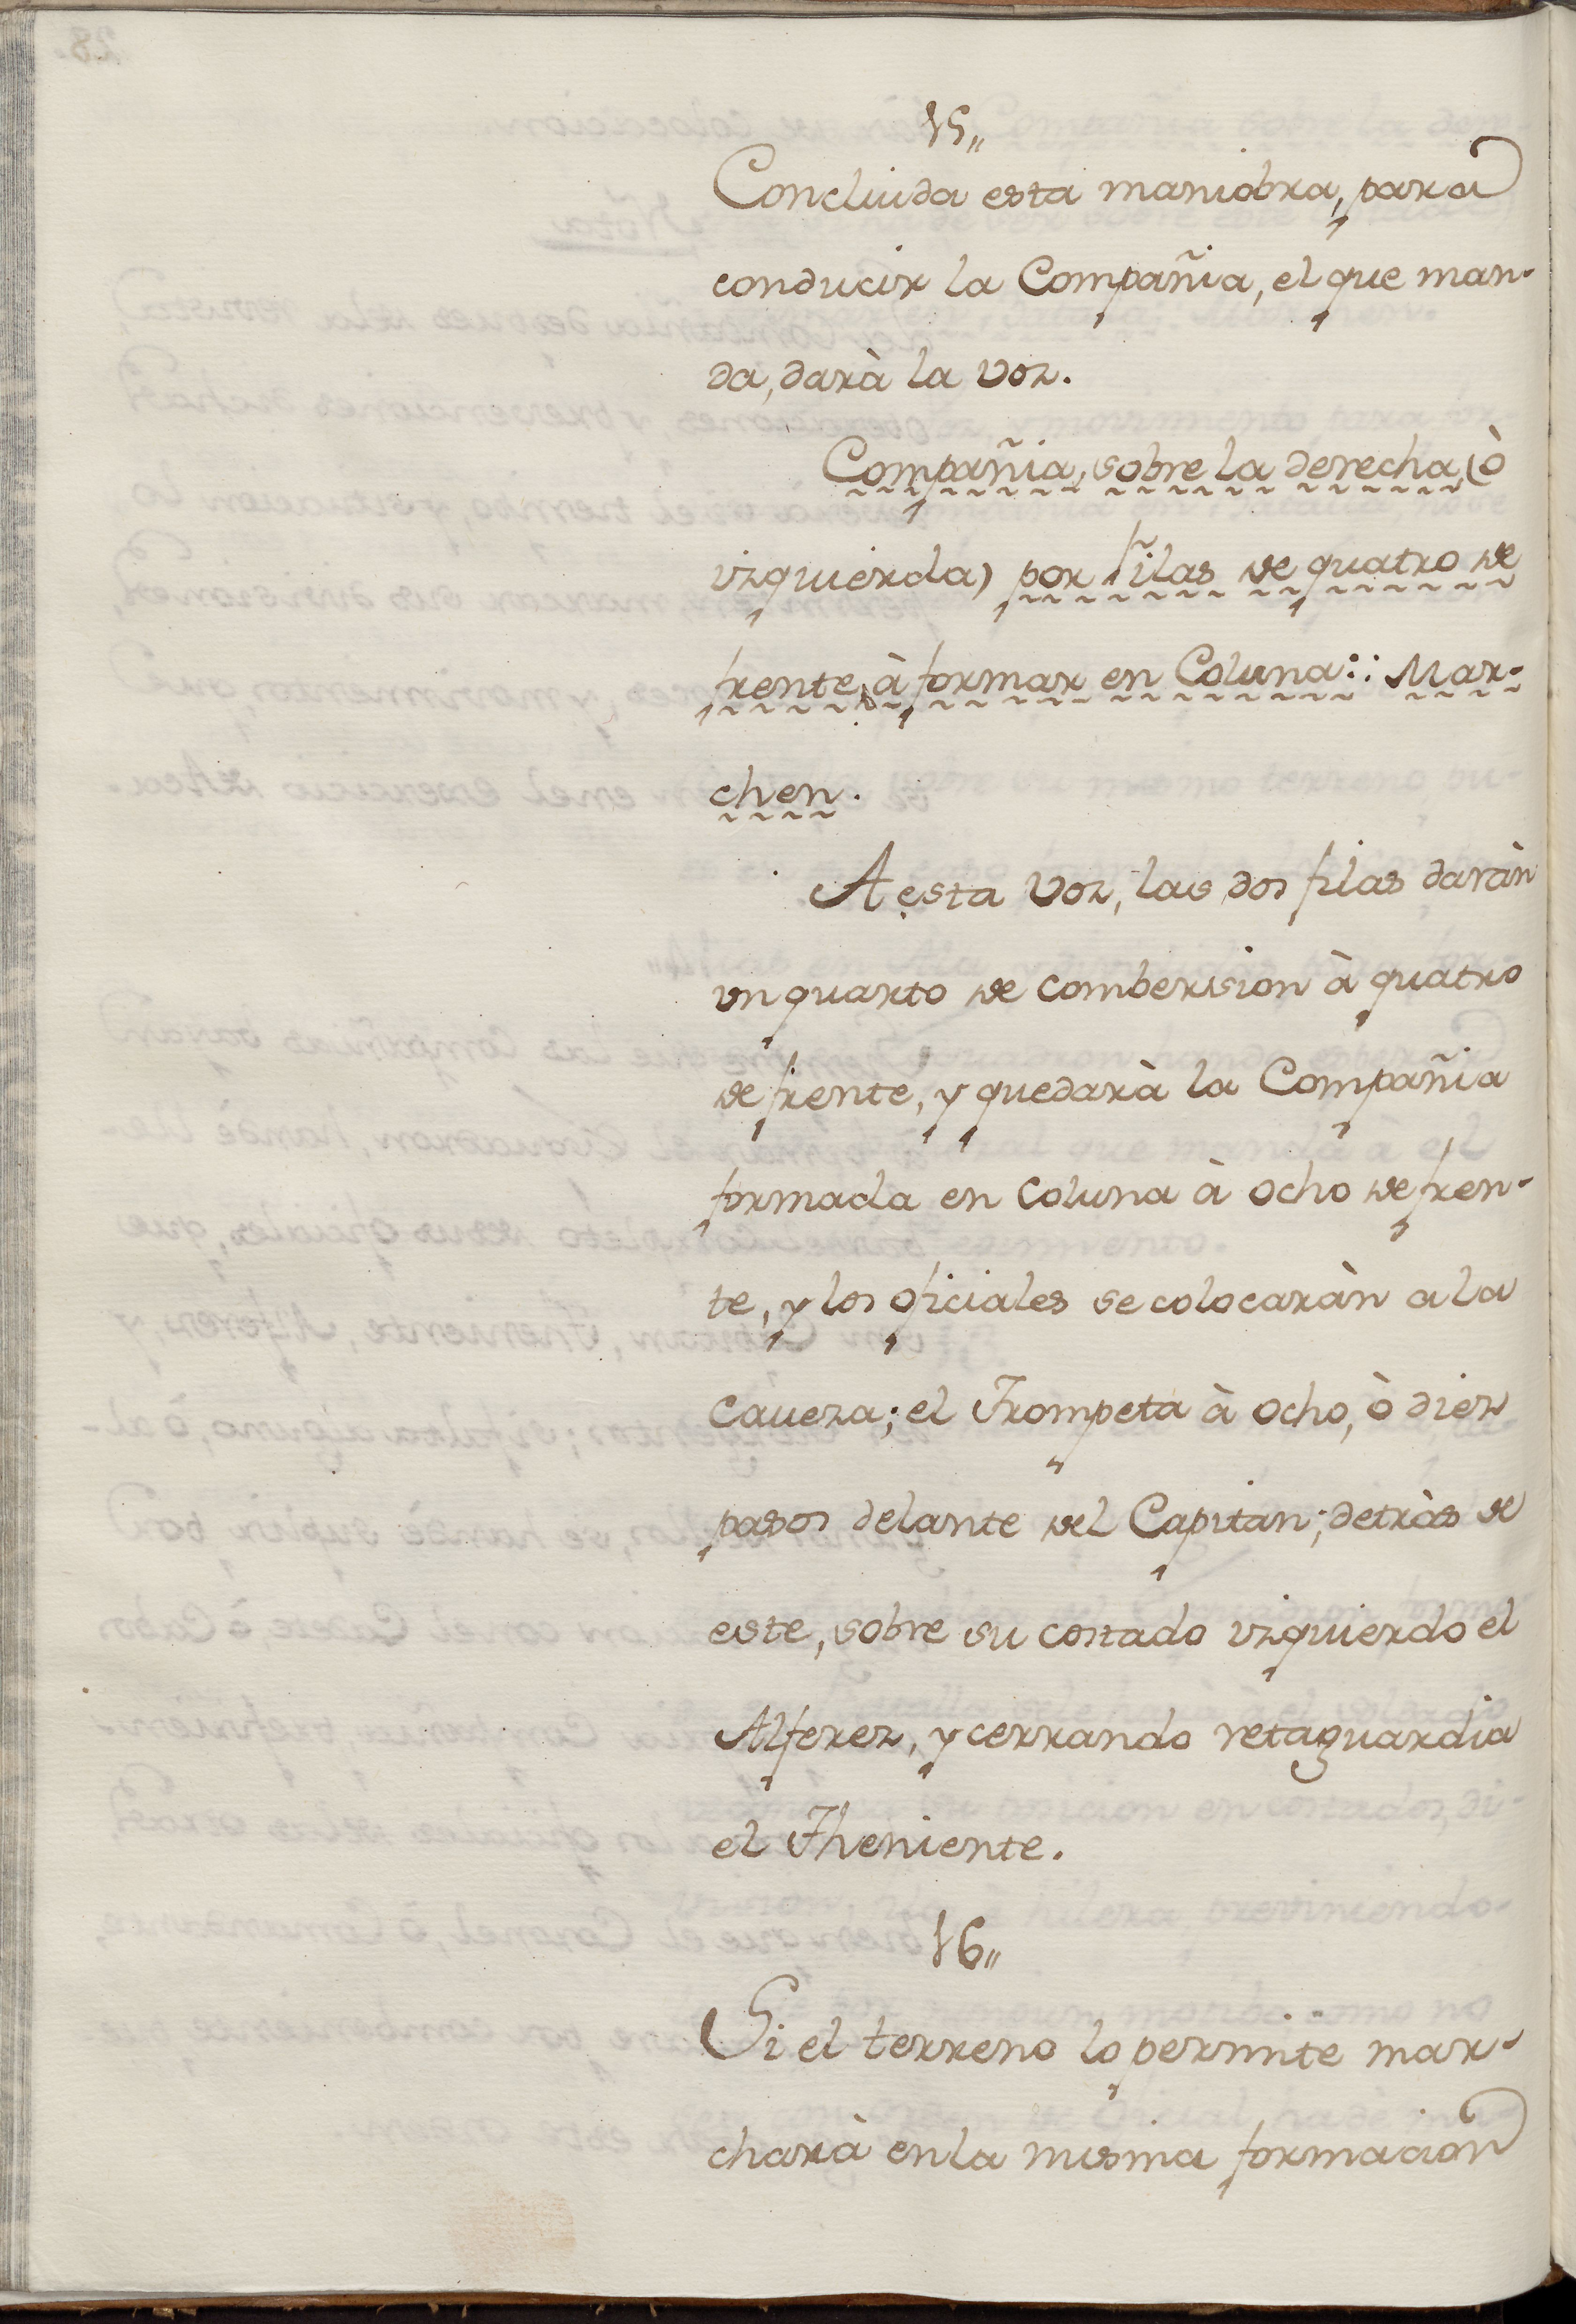 15,,
Concluida esta maniobra, para
conducir la Compañia, el que man-
da, darà la voz.
Compañia, sobre la derecha, (ò
izquierda) por filas de quatro de
frente, à formar en Coluna:: Mar-
chen.
A esta voz, las dos filas daràn
un quarto de combersion à quatro
de frente, y quedarà la Compañia
formada en Coluna à ocho de fren-
te, y los oficiales se colocaràn a la
Caveza; el Trompeta à ocho, ò diez
pasos delante del Capitan; detràs de
este, sobre su costado izquierdo el
Alferez, y cerrando retaguardia
el Theniente.
16,,
Si el terreno lo permite mar-
charà en la misma formacion